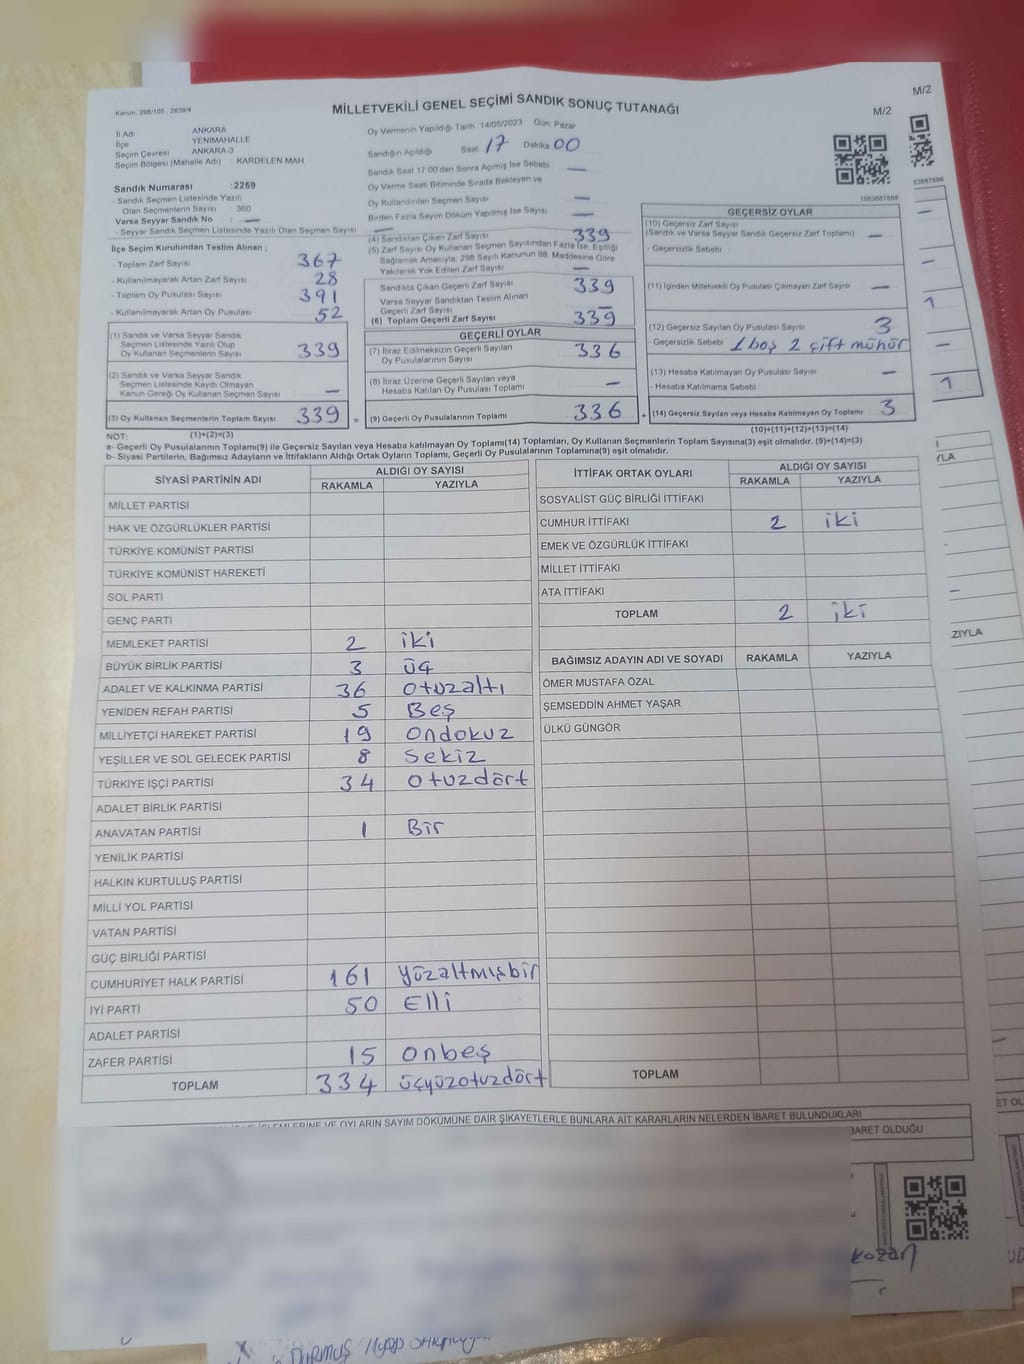 Kanun: 298/105 , 2839/4
MİLLETVEKİLİ GENEL SEÇİMİ SANDIK SONUÇ TUTANAĞI
M/2
M/2
İl Adı ANKARA
İlçe YENİMAHALLE
Seçim Çevresi ANKARA-3
Seçim Bölgesi (Mahalle Adı) : KARDELEN MAH.
Oy Vermenin Yapıldığı Tarih : 14/05/2023 Gün: Pazar
Sandığın Açıldığı Saat 17 Dakika 00
Sandık Saat 17:00'den Sonra Açımış İse Sebebi —
Oy Verme Saati Bitiminde Sırada Bekleyen ve
Oy Kullandırılan Seçmen Sayısı —
Birden Fazla Sayım Döküm Yapılmış İse Sayısı —
Sandık Numarası :2259
- Sandık Seçmen Listesinde Yazılı
Olan Seçmenlerin Sayısı : 360
Varsa Seyyar Sandık No : —
- Seyyar Sandık Seçmen Listesinde Yazılı Olan Seçmen Sayısı —
İlçe Seçim Kurulundan Teslim Alınan ;
- Toplam Zarf Sayısı 367
- Kullanılmayarak Artan Zarf Sayısı 28
- Toplam Oy Pusulası Sayısı 391
- Kullanılmayarak Artan Oy Pusulası 52
(1) Sandık ve Varsa Seyyar Sandık
Seçmen Listesinde Yazılı Olup
Oy Kullanan Seçmenlerin Sayısı 339
(2) Sandık ve Varsa Seyyar Sandık
Seçmen Listesinde Kayıtlı Olmayan
Kanun Gereği Oy Kullanan Seçmen Sayısı —
(3) Oy Kullanan Seçmenlerin Toplam Sayısı 339 =
(1)+(2)=(3)
(4) Sandıktan Çıkan Zarf Sayısı 339
(5) Zarf Sayısı Oy Kullanan Seçmen Sayısından Fazla İse, Eşitliği
Sağlamak Amacıyla, 298 Sayılı Kanunun 98. Maddesine Göre
Yakılarak Yok Edilen Zarf Sayısı —
Sandıkta Çıkan Geçerli Zarf Sayısı 339
Varsa Seyyar Sandıktan Teslim Alınan
Geçerli Zarf Sayısı —
(6) Toplam Geçerli Zarf Sayısı 339
GEÇERLİ OYLAR
(7) İtiraz Edilmeksizin Geçerli Sayılan
Oy Pusulalarının Sayısı 336
(8) İtiraz Üzerine Geçerli Sayılan veya
Hesaba Katılan Oy Pusulası Toplamı —
(9) Geçerli Oy Pusulalarının Toplamı 336 +
1083687888
GEÇERSİZ OYLAR
(10) Geçersiz Zarf Sayısı
(Sandık ve Varsa Seyyar Sandık Geçersiz Zarf Toplamı) —
- Geçersizlik Sebebi
(11) İçinden Milletvekili Oy Pusulası Çıkmayan Zarf Sayısı —
(12) Geçersiz Sayılan Oy Pusulası Sayısı 3
- Geçersizlik Sebebi 1 boş 2 çift mühür
(13) Hesaba Katılmayan Oy Pusulası Sayısı —
- Hesaba Katılmama Sebebi
(14) Geçersiz Sayılan veya Hesaba Katılmayan Oy Toplamı 3
(10)+(11)+(12)+(13)=(14)
NOT:
a- Geçerli Oy Pusulalarının Toplamı(9) ile Geçersiz Sayılan veya Hesaba katılmayan Oy Toplamı(14) Toplamları, Oy Kullanan Seçmenlerin Toplam Sayısına(3) eşit olmalıdır. (9)+(14)=(3)
b- Siyasi Partilerin, Bağımsız Adayların ve İttifakların Aldığı Ortak Oyların Toplamı, Geçerli Oy Pusulalarının Toplamına(9) eşit olmalıdır.
SİYASİ PARTİNİN ADI ALDIĞI OY SAYISI
RAKAMLA YAZIYLA
MİLLET PARTİSİ
HAK VE ÖZGÜRLÜKLER PARTİSİ
TÜRKİYE KOMÜNİST PARTİSİ
TÜRKİYE KOMÜNİST HAREKETİ
SOL PARTİ
GENÇ PARTİ
MEMLEKET PARTİSİ 2 iki
BÜYÜK BİRLİK PARTİSİ 3 üç
ADALET VE KALKINMA PARTİSİ 36 otuzaltı
YENİDEN REFAH PARTİSİ 5 Beş
MİLLİYETÇİ HAREKET PARTİSİ 19 ondokuz
YEŞİLLER VE SOL GELECEK PARTİSİ 8 sekiz
TÜRKİYE İŞÇİ PARTİSİ 34 otuzdört
ADALET BİRLİK PARTİSİ
ANAVATAN PARTİSİ 1 Bir
YENİLİK PARTİSİ
HALKIN KURTULUŞ PARTİSİ
MİLLİ YOL PARTİSİ
VATAN PARTİSİ
GÜÇ BİRLİĞİ PARTİSİ
CUMHURİYET HALK PARTİSİ 161 yüzaltmışbir
İYİ PARTİ 50 Elli
ADALET PARTİSİ
ZAFER PARTİSİ 15 onbeş
TOPLAM 334 üçyüzotuzdört
İTTİFAK ORTAK OYLARI ALDIĞI OY SAYISI
RAKAMLA YAZIYLA
SOSYALİST GÜÇ BİRLİĞİ İTTİFAKI
CUMHUR İTTİFAKI 2 iki
EMEK VE ÖZGÜRLÜK İTTİFAKI
MİLLET İTTİFAKI
ATA İTTİFAKI
TOPLAM 2 iki
BAĞIMSIZ ADAYIN ADI VE SOYADI RAKAMLA YAZIYLA
ÖMER MUSTAFA ÖZAL
ŞEMSEDDİN AHMET YAŞAR
ÜLKÜ GÜNGÖR
TOPLAM
İŞLEMLERİNE VE OYLARIN SAYIM DÖKÜMÜNE DAİR ŞİKAYETLERLE BUNLARA AİT KARARLARIN NELERDEN İBARET BULUNDUKLARI
BARET OLDUĞU
kozan